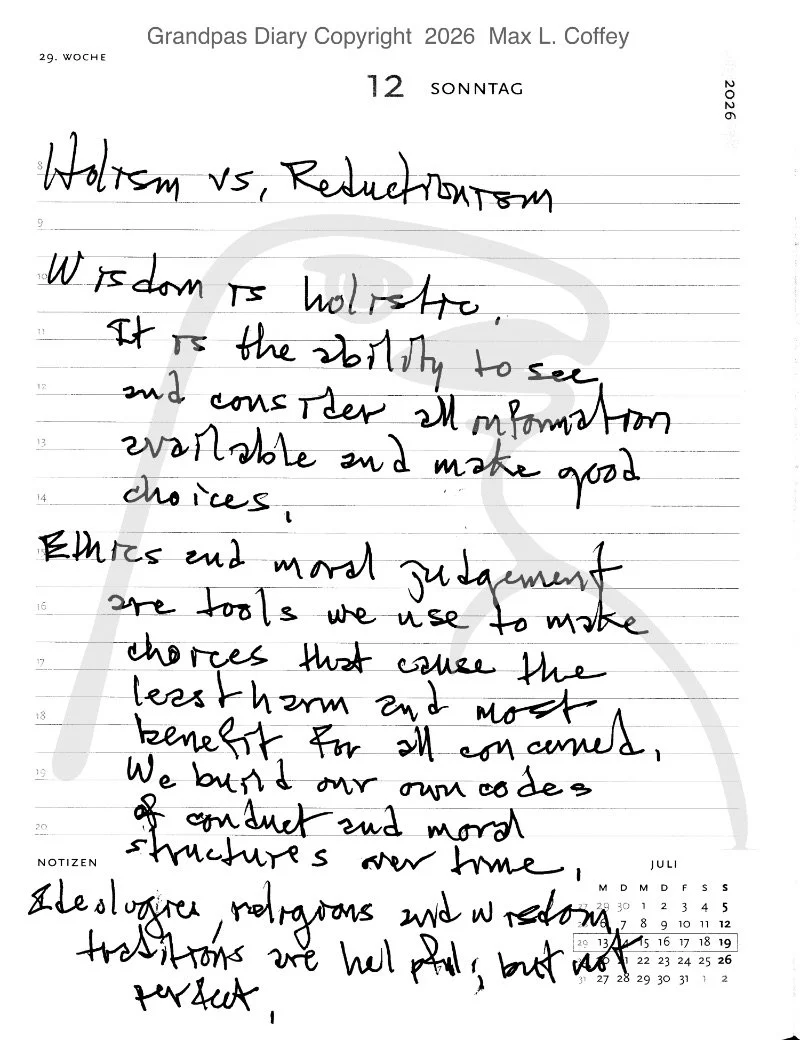 Grandpas Diary Copyright 2026 Max L. Coffey
29. WOCHE
12 SONNTAG
2026
8
Holism vs, Reductionism
9
10
Wisdom is holistic.
11
It is the ability to see
12
and consider all information
13
available and make good
14
choices.
15
Ethics and moral judgement
16
are tools we use to make
17
choices that cause the
least harm and most
18
benefit for all concerned.
19
We build our own codes
of conduct and moral
20
structures over time.
NOTIZEN
JULI
M D M D F S S
27 29 30 1 2 3 4 5
6 7 8 9 10 11 12
29 13 14 15 16 17 18 19
22 23 24 25 26
31 27 28 29 30 31 1 2
Ideologies, religions and wisdom
traditions are helpful, but not
perfect.